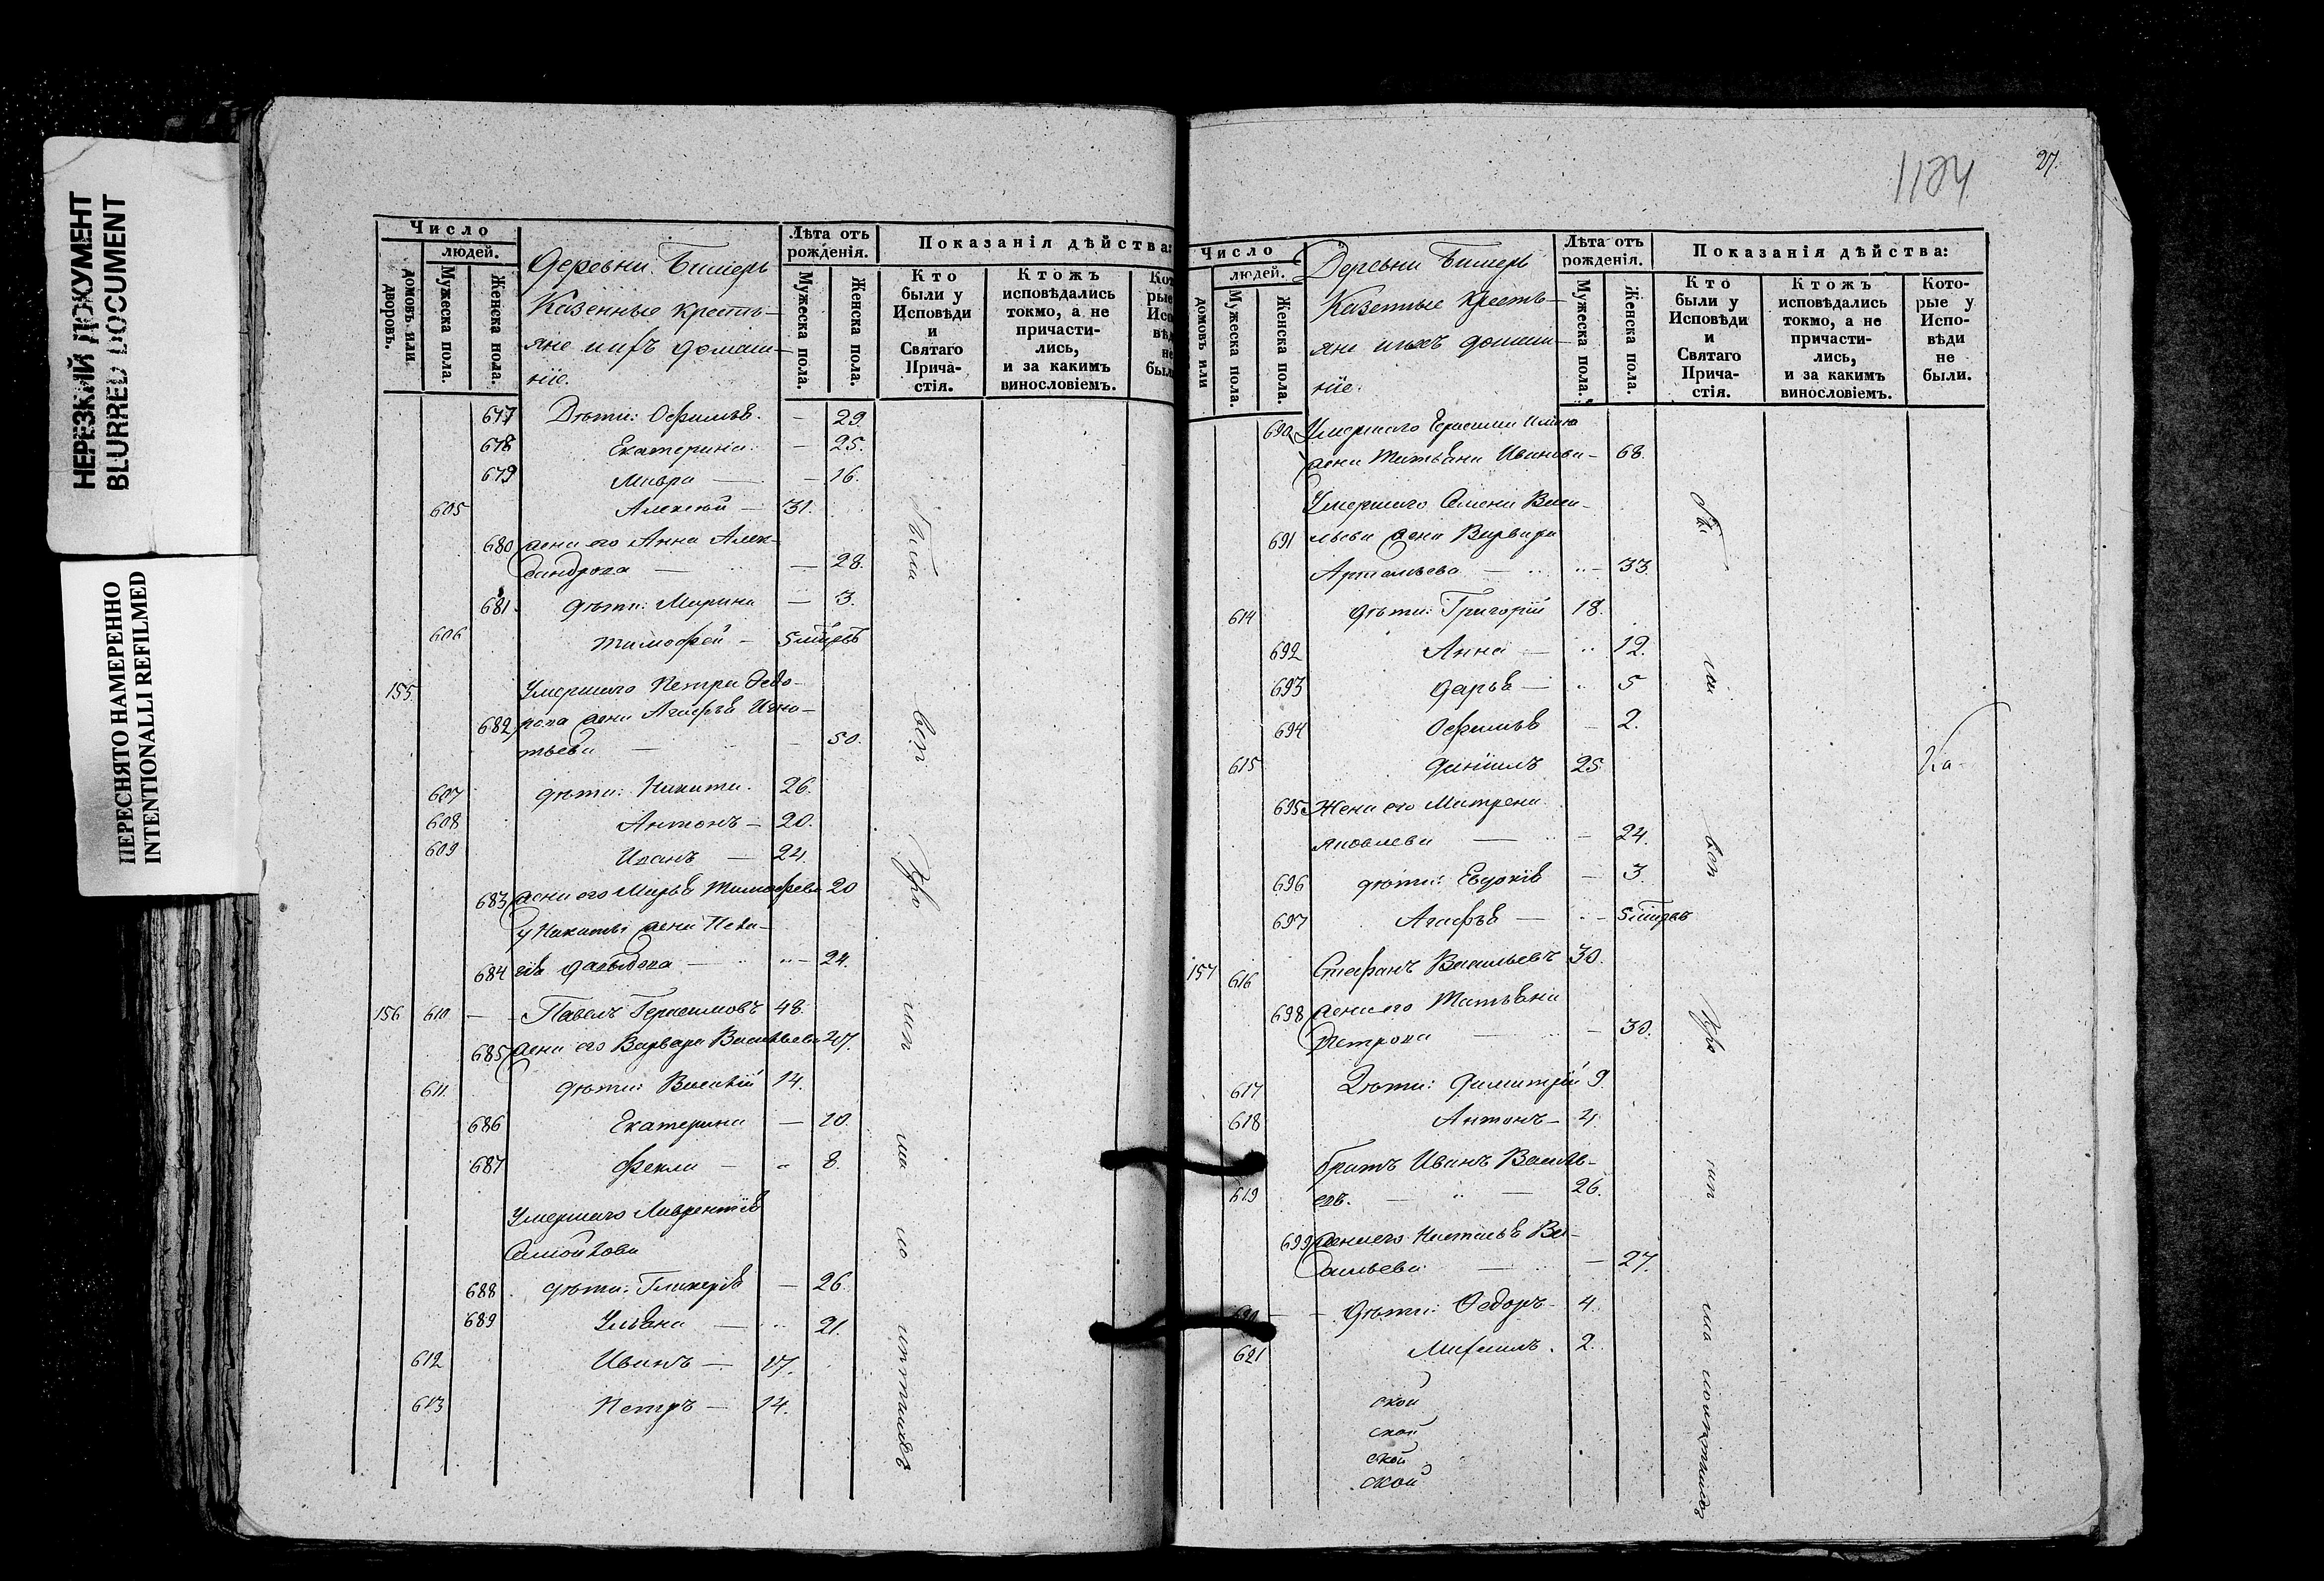 НЕРЕЗКИЙ ДОКУМЕНТ
BLURRED DOCUMENT
ПЕРЕСНЯТО НАМЕРЕННО
INTENTIONALLI REFILMED
Число
людей.
домовъ или дворовъ.
Мужеска пола.
Женска пола.
Деревни Бимерь
Казенные кресть-
яне ихъ домаш-
ніе.
Лѣта отъ рожденія.
Мужеска пола.
Женска пола.
Показанія дѣйства:
Кто были у Исповѣди и Святаго Прича-стія.
Ктожъ исповѣдались токмо, а не причасти-лись, и за какимъ винословіемъ.
677 Дѣти: Ефимья. — 29.
678 Екатерина. — 25.
679 Мавра — — 16.
605 Алексѣй — 31.
680 жена его Анна Алек-
сандрова — — 28.
681 дѣти: Марина — 3.
606 Тимофей — 5 мцовъ
155 Умершаго Петра Федо-
682 рова жена Агафья Игна-
тьева — — 50.
607 дѣти: Никита. 26.
608 Антонъ — 20.
609 Иванъ — 24.
683 жена его Марья Тимофеева 20
у Никиты жена Пела-
684 гія Давыдова — — 24.
156 610 — Павелъ Герасимовъ 48.
685 жена его Варвара Васильева 47.
611. дѣти: Василій 14.
686 Екатерина — 10.
687 Фекла — 8.
Умершаго Лаврентія
Самойлова
688 дѣти: Гликерія — 26.
689 Ульяна — 21.
612 Иванъ — 17.
613 Петръ — 14.
были
всѣ
1124
27.
Число
людей.
домовъ или
Мужеска пола.
Женска пола.
Деревни Бимерь
Казенные кресть-
яне ихъ домаш-
ніе.
Лѣта отъ рожденія.
Мужеска пола.
Женска пола.
Показанія дѣйства:
Кто были у Исповѣди и Святаго Прича-стія.
Ктожъ исповѣдались токмо, а не причасти-лись, и за какимъ винословіемъ.
Кото-рые у Испо-вѣди не были.
690 Умершаго Герасима
жена Татьяна Иванова — 68.
Умершаго Семена Васи-
691 льева жена Варвара
Артемьева — — 33.
614 дѣти: Григорій 18.
692 Анна — 12.
693 Дарья — 5
694 Ефимья — 2.
615 Даніилъ 25
695 Жена его Матрена
Яковлева — — 24.
696 дѣти: Евдокія — 3.
697 Агафья — — 5 мцовъ
157 616 Стефанъ Васильевъ 30.
698 жена его Татьяна
Петрова — — 30.
617 Дѣти: Димитрій 9.
618 Антонъ — 4.
братъ Иванъ Василь-
619 евъ. — — 26.
699 жена его Наталья Ва-
сильева — — 27.
620 — дѣти: Федоръ — 4
621 Михаилъ. 2.
ской
ской
ской
ской
бы
ли
всѣ